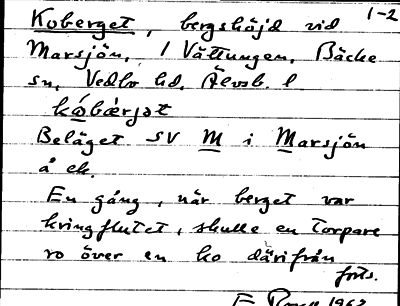 1-2
Koberget, bergshöjd vid
Marsjön, / Vättungen, Bäcke
sn, Vedbo hd, Älvsb. l
kώ̯bær̀jət
Beläget SV M i Marsjön
å ek.
En gång, när berget var
kringflutet, skulle en torpare
ro över en ko därifrån
forts.
1963